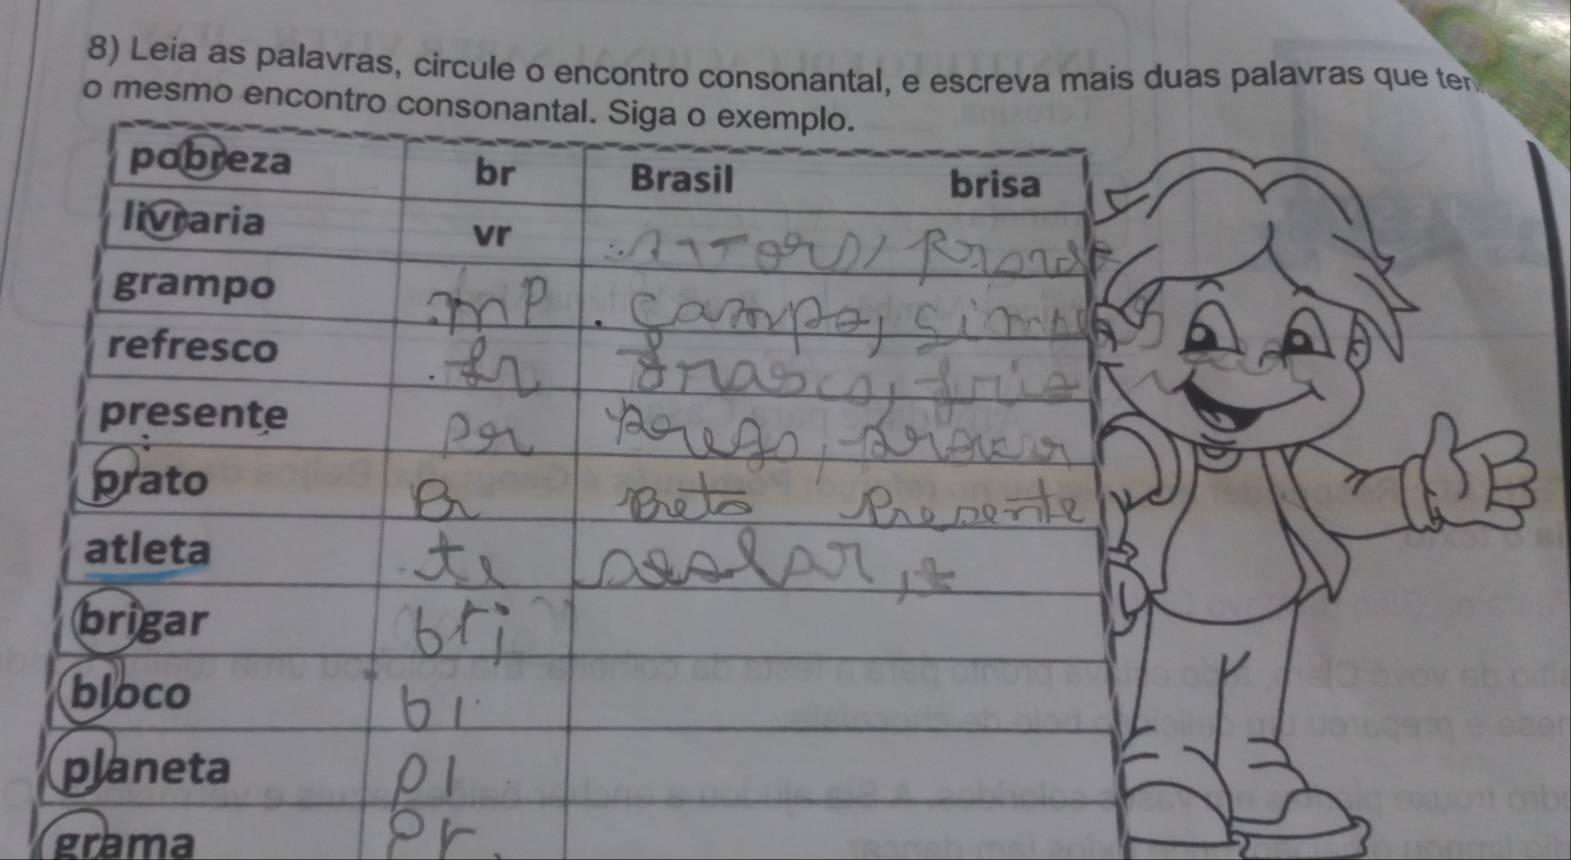 8) Leia as palavras, circule o encontro consonantal, e escreva mais duas palavras que
o mesmo encontro consonantal. Siga o exemplo.
pobreza br Brasil brisa
livraria vr
grampo mp campo,
refresco fr frasco, frio
presente
prato Preto Presente
atleta
brigar bri
bloco bl
planeta pl
grama